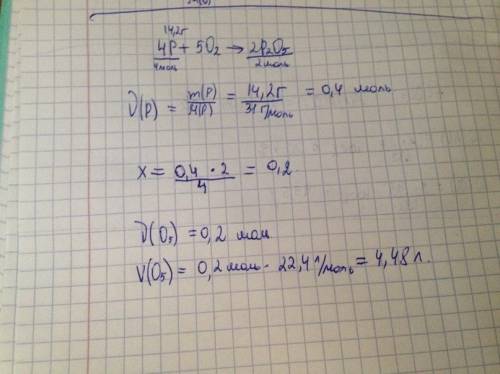 14,2г
4P + 5O₂ → 2P₂O₅
4моль 2моль
ν(P) = m(P)/M(P) = 14,2г/31г/моль = 0,4 моль
x = 0,4 · 2/4 = 0,2
ν(O₅) = 0,2 мол
V(O₅) = 0,2 мол · 22,4 л/моль = 4,48 л.